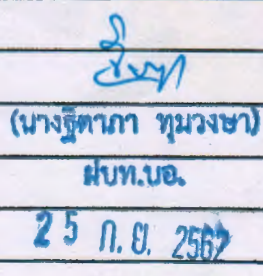 (นางฐิตาภา ทุมวงษา)
ฝบท.บอ.
25 ก.ย. 2562